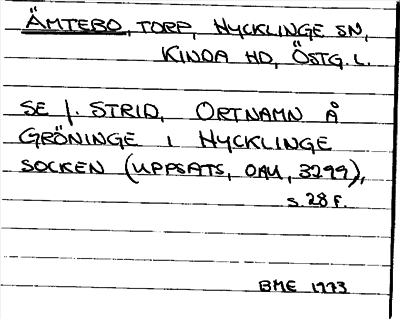 ÄMTEBO, TORP, HYCKLINGE SN,
KINDA HD, ÖSTG. L.
SE J. STRID, ORTNAMN Å
GRÖNINGE I HYCKLINGE
SOCKEN (UPPSATS, OAU, 3299),
s. 28 F.
BME 1973